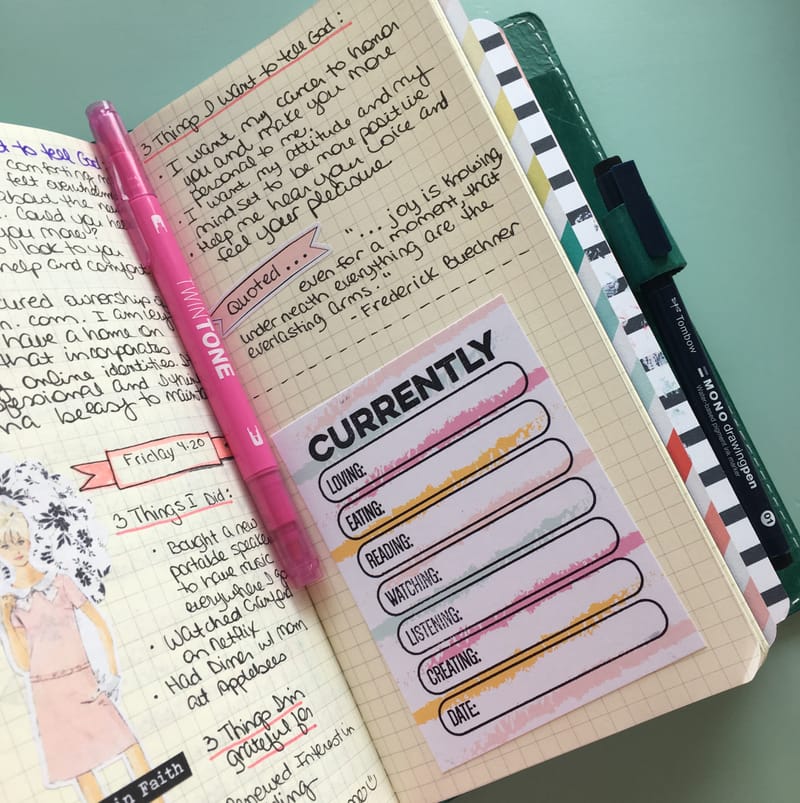 to tell God:
comforting
felt
about the
Could you
you more?
look to you
help and
ownership
com. I am
have a home on
that incorporates
online identities.
and
be easy to
Friday 4.20
3 Things I Did:
• Bought a new
portable
to have music
everywhere I go
• Watched
on Netflix
• Had Dinner w/ mom
at Applebees
3 Things I'm
grateful for
Renewed Interest in
in Faith
3 Things I want to tell God:
• I want my career to honor
you and make you more
personal to me.
• I want my attitude and my
mindset to be more positive
• Help me hear your voice and
feel your pleasure
Quoted...
"... joy is knowing
even for a moment, that
underneath everything are the
everlasting arms."
- Frederick Buechner
CURRENTLY
LOVING:
EATING:
READING:
WATCHING:
LISTENING:
CREATING:
DATE:
TWINTONE
Tombow
MONO drawing pen
Water-based pigment ink marker